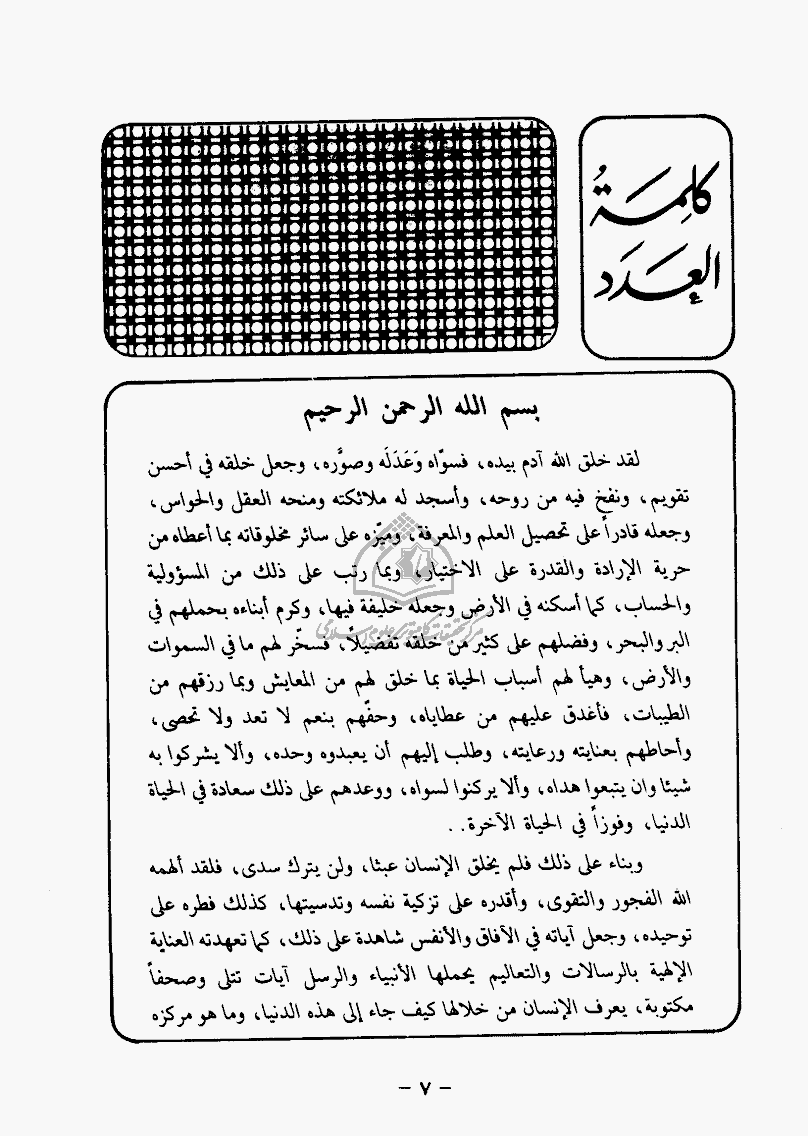 كلِمَةُ
العَدَد
بسم الله الرحمن الرحيم
لقد خلق الله آدم بيده، فسوّاه وَعَدَلَه وصوَّره، وجعل خلقه في أحسن
تقويم، ونفخ فيه من روحه، وأسجد له ملائكته ومنحه العقل والحواس،
وجعله قادراً على تحصيل العلم والمعرفة، وميّزه على سائر مخلوقاته بما أعطاه من
حرية الإرادة والقدرة على الاختيار، وبما رتب على ذلك من المسؤولية
والحساب، كما أسكنه في الأرض وجعله خليفة فيها، وكرم أبناءه بحملهم في
البر والبحر، وفضلهم على كثير من خلقه تفضيلاً، فسخّر لهم ما في السموات
والأرض، وهيأ لهم أسباب الحياة بما خلق لهم من المعايش وبما رزقهم من
الطيبات، فأغدق عليهم من عطاياه، وحفّهم بنعم لا تعد ولا تحصى،
وأحاطهم بعنايته ورعايته، وطلب إليهم أن يعبدوه وحده، وألا يشركوا به
شيئا وان يتبعوا هداه، وألا يركنوا لسواه، ووعدهم على ذلك سعادة في الحياة
الدنيا، وفوزاً في الحياة الآخرة. .
وبناء على ذلك فلم يخلق الإنسان عبثا، ولن يترك سدى، فلقد ألهمه
الله الفجور والتقوى، وأقدره على تزكية نفسه وتدسيتها، كذلك فطره على
توحيده، وجعل آياته في الآفاق والأنفس شاهدة على ذلك، كما تعهدته العناية
الإلهية بالرسالات والتعاليم يحملها الأنبياء والرسل آيات تتلى وصحفاً
مكتوبة، يعرف الإنسان من خلالها كيف جاء إلى هذه الدنيا، وما هو مركزه
– ٧ –